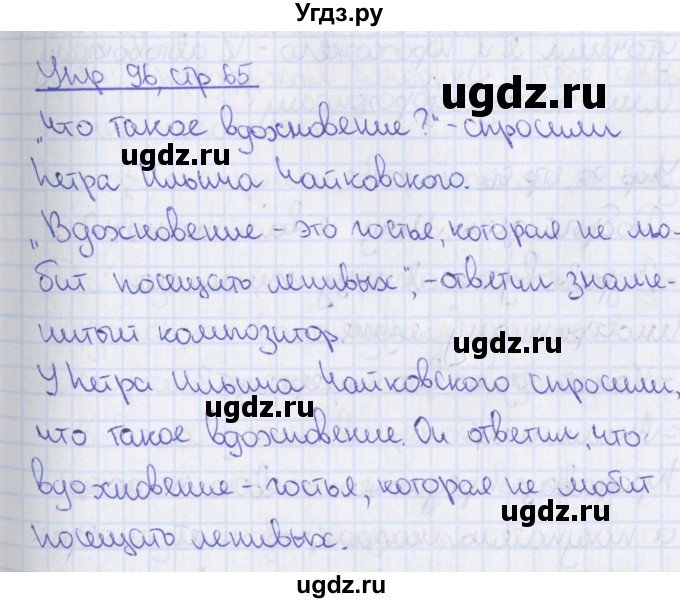 Угдз.ру
Упр 96, стр 65
ugdz.ru
„Что такое вдохновение?“ - спросили
ugdz.ru
Петра Ильича Чайковского.
„Вдохновение - это гостья, которая не лю-
ugdz.ru
бит посещать ленивых“, - ответил знаме-
нитый композитор.
ugdz.ru
У Петра Ильича Чайковского спросили,
ugdz.ru
что такое вдохновение. Он ответил, что
вдохновение - гостья, которая не любит
ugdz.ru
посещать ленивых.
ugdz.ru